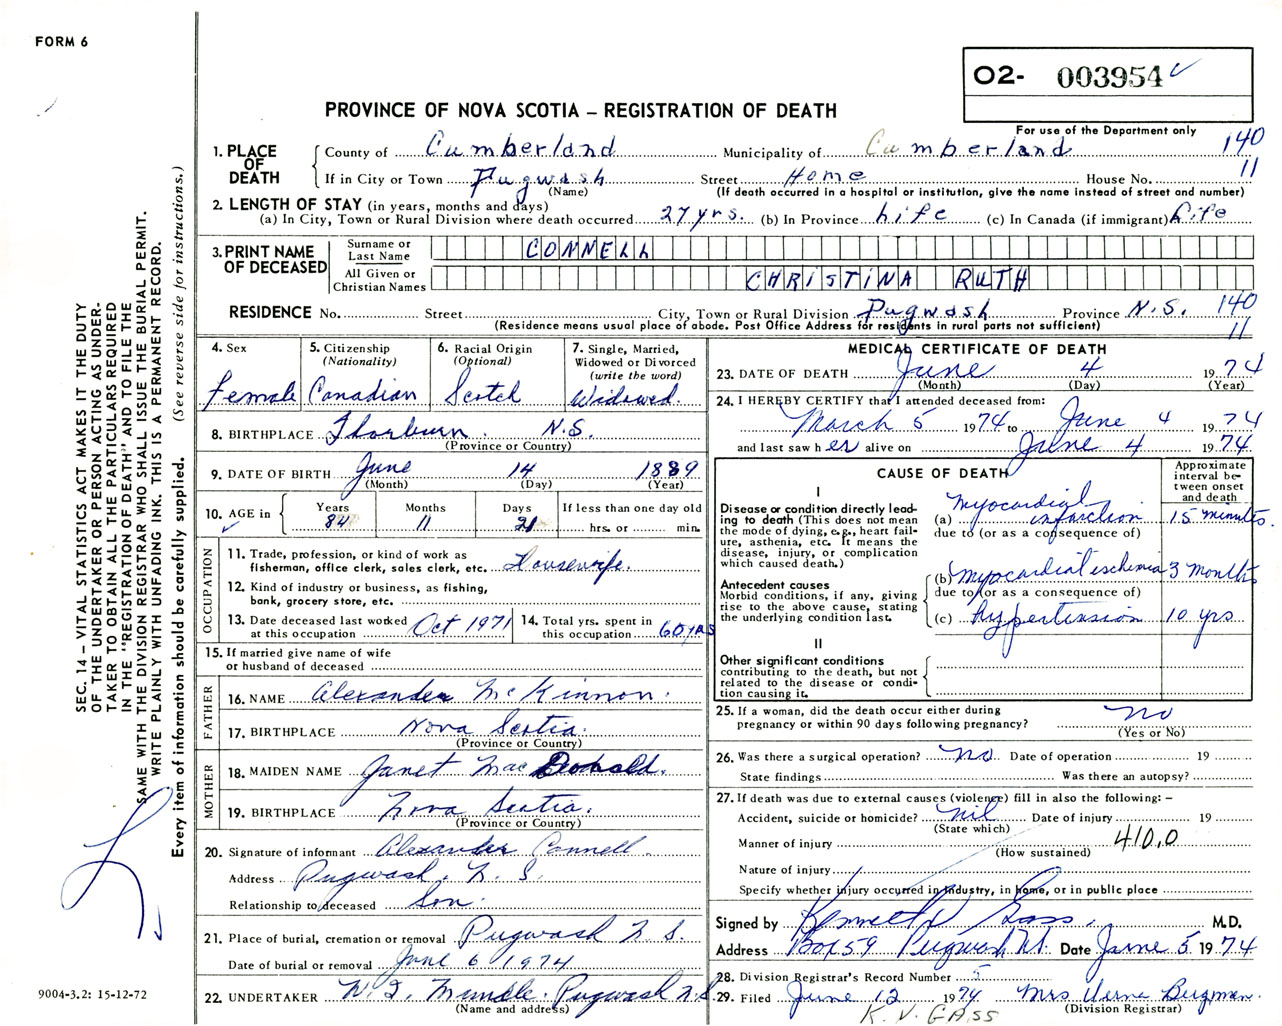 FORM 6
O2- 003954
PROVINCE OF NOVA SCOTIA – REGISTRATION OF DEATH
For use of the Department only
140
11
1. PLACE OF DEATH
County of Cumberland Municipality of Cumberland
If in City or Town Pugwash Street Home House No.
(Name) (If death occurred in a hospital or institution, give the name instead of street and number)
2. LENGTH OF STAY (in years, months and days)
(a) In City, Town or Rural Division where death occurred 27 yrs. (b) In Province Life (c) In Canada (if immigrant) Life
3. PRINT NAME OF DECEASED
Surname or Last Name CONNELL
All Given or Christian Names CHRISTINA RUTH
RESIDENCE No. Street City, Town or Rural Division Pugwash Province N.S. 140
(Residence means usual place of abode. Post Office Address for residents in rural parts not sufficient) 11
4. Sex
Female
5. Citizenship
(Nationality)
Canadian
6. Racial Origin
(Optional)
Scotch
7. Single, Married, Widowed or Divorced
(write the word)
Widowed.
8. BIRTHPLACE Thorburn. N.S.
(Province or Country)
9. DATE OF BIRTH June 14 1889
(Month) (Day) (Year)
10. AGE in
Years Months Days If less than one day old
84 11 21 hrs. or min.
OCCUPATION
11. Trade, profession, or kind of work as
fisherman, office clerk, sales clerk, etc. Housewife.
12. Kind of industry or business, as fishing,
bank, grocery store, etc.
13. Date deceased last worked
at this occupation Oct 1971
14. Total yrs. spent in
this occupation 60 yrs
15. If married give name of wife
or husband of deceased
FATHER
16. NAME Alexander McKinnon.
17. BIRTHPLACE Nova Scotia.
(Province or Country)
MOTHER
18. MAIDEN NAME Janet MacDonald.
19. BIRTHPLACE Nova Scotia.
(Province or Country)
20. Signature of informant Alexander Connell.
Address Pugwash. N.S.
Relationship to deceased Son.
21. Place of burial, cremation or removal Pugwash N.S.
Date of burial or removal June 6 1974
22. UNDERTAKER Pugwash N.S.
(Name and address)
MEDICAL CERTIFICATE OF DEATH
23. DATE OF DEATH June 4 1974
(Month) (Day) (Year)
24. I HEREBY CERTIFY that I attended deceased from:
March 5 1974 to June 4 1974
and last saw her alive on June 4 1974
CAUSE OF DEATH
Approximate interval between onset and death
I
Disease or condition directly leading to death (This does not mean the mode of dying, e.g., heart failure, asthenia, etc. It means the disease, injury, or complication which caused death.)
(a) myocardial infarction 15 minutes
due to (or as a consequence of)
Antecedent causes
Morbid conditions, if any, giving rise to the above cause, stating the underlying condition last.
(b) myocardial eschemia 3 months
due to (or as a consequence of)
(c) hypertension 10 yrs
II
Other significant conditions
contributing to the death, but not related to the disease or condition causing it.
25. If a woman, did the death occur either during
pregnancy or within 90 days following pregnancy? no
(Yes or No)
26. Was there a surgical operation? no Date of operation 19
State findings Was there an autopsy?
27. If death was due to external causes (violence) fill in also the following: –
Accident, suicide or homicide? nil Date of injury 19
(State which)
Manner of injury 410.0
(How sustained)
Nature of injury
Specify whether injury occurred in industry, in home, or in public place
Signed by Kenneth Gass. M.D.
Address Box 59 Pugwash N.S. Date June 5 1974
28. Division Registrar's Record Number 5
29. Filed June 12 1974 Mrs Verne Bergman.
(Division Registrar)
K. V. GASS
SEC. 14 – VITAL STATISTICS ACT MAKES IT THE DUTY
OF THE UNDERTAKER OR PERSON ACTING AS UNDER-
TAKER TO OBTAIN ALL THE PARTICULARS REQUIRED
IN THE "REGISTRATION OF DEATH" AND TO FILE THE
SAME WITH THE DIVISION REGISTRAR WHO SHALL ISSUE THE BURIAL PERMIT.
WRITE PLAINLY WITH UNFADING INK. THIS IS A PERMANENT RECORD.
Every item of information should be carefully supplied. (See reverse side for instructions.)
9004-3.2: 15-12-72